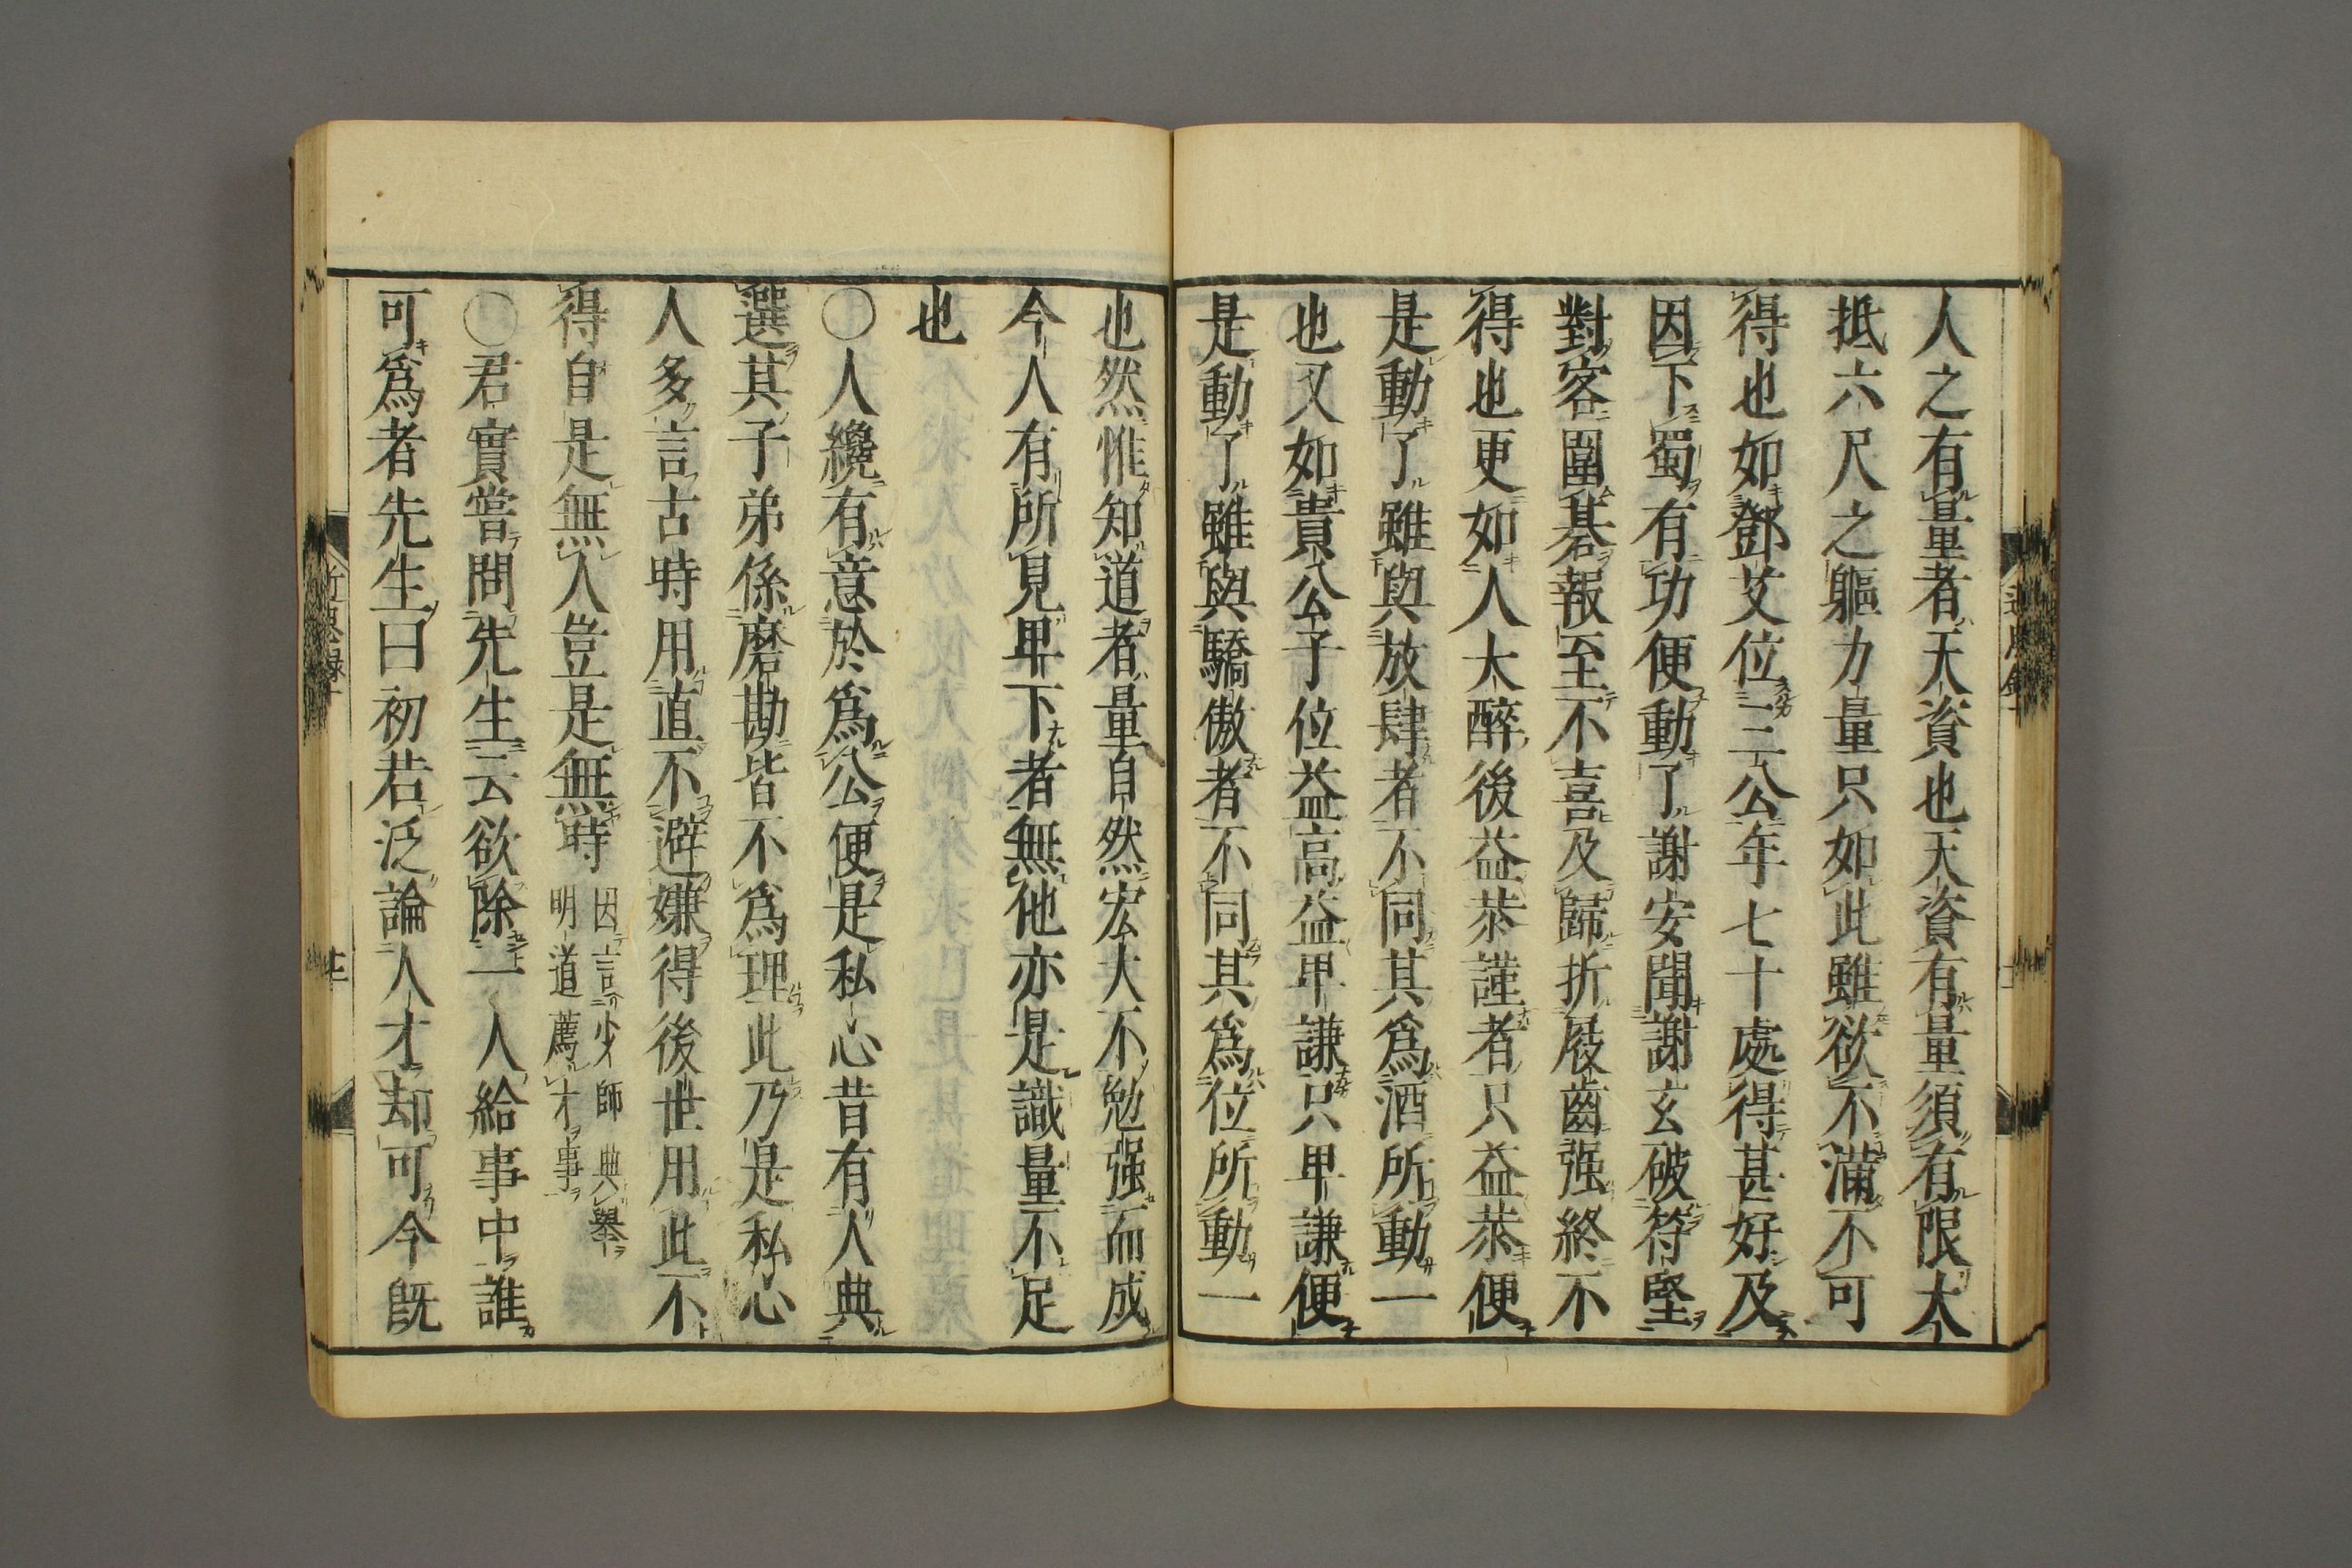 人之有量者天資也天資有量須有限大
抵六尺之軀力量只如此雖欲不滿不可
得也如鄧艾位三公年七十處得甚好及
因下蜀有功便動了謝安聞謝玄破苻堅
對客圍棊報至不喜及歸折屐齒强終不
得也更如人大醉後益恭謹者只益恭便
是動了雖與放肆者不同其爲酒所動一
也又如貴公子位益高益卑謙只卑謙便
是動了雖與驕傲者不同其爲位所動一
也然惟知道者量自然宏大不勉强而成
今人有所見卑下者無他亦是識量不足
也
〇人纔有意於爲公便是私心昔有人典
選其子弟係磨勘皆不爲理此乃是私心
人多言古時用直不避嫌得後世用此不
得自是無人豈是無時 因言少師典舉
明道薦才事
〇君實嘗問先生云欲除一人給事中誰
可爲者先生曰初若泛論人才却可今既
近思錄十